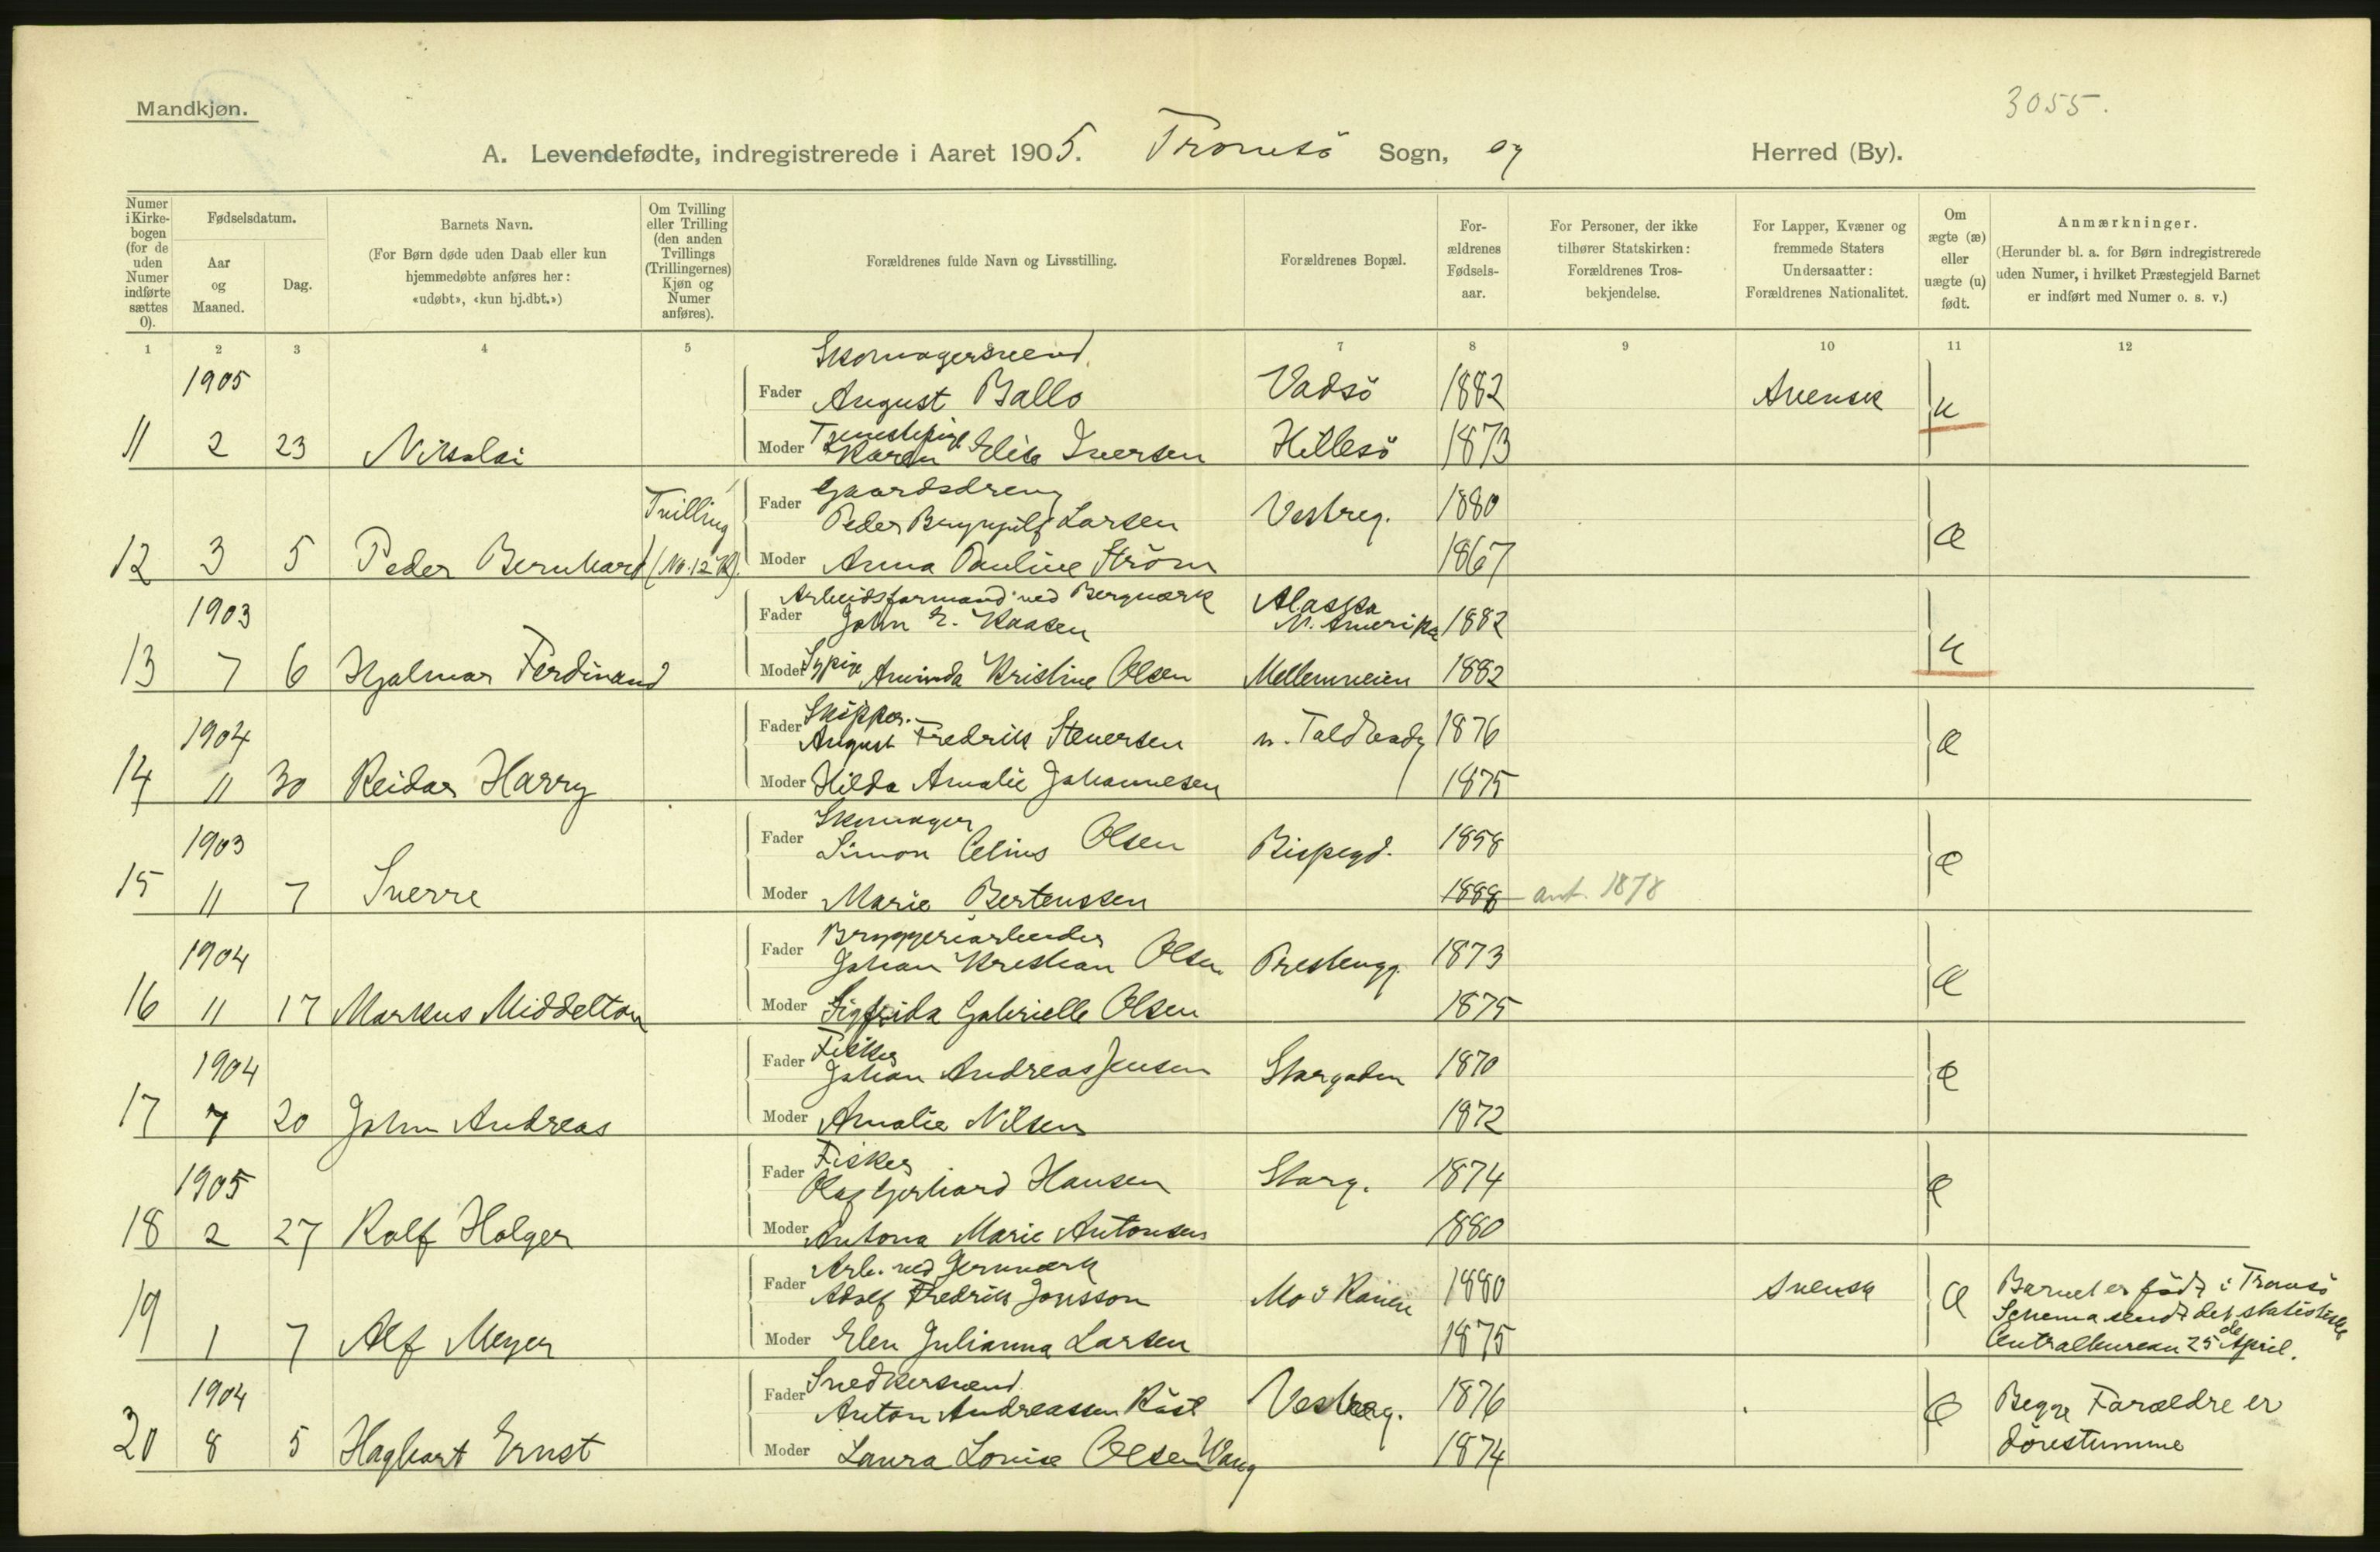 Mandkjøn.
3055.
A. Levendefødte, indregistrerede i Aaret 1905. Tromsö Sogn, og Herred (By).
Numer i Kirkebogen (for de uden Numer indførte sættes 0).
Fødselsdatum.
Aar og Maaned.
Dag.
Barnets Navn.
(For Børn døde uden Daab eller kun hjemmedøbte anføres her: «udøbt», «kun hj.dbt.»)
Om Tvilling eller Trilling (den anden Tvillings (Trillingernes) Kjøn og Numer anføres).
Forældrenes fulde Navn og Livsstilling.
Forældrenes Bopæl.
For-ældrenes Fødsels-aar.
For Personer, der ikke tilhører Statskirken: Forældrenes Tros-bekjendelse.
For Lapper, Kvæner og fremmede Staters Undersaatter: Forældrenes Nationalitet.
Om ægte (æ) eller uægte (u) født.
Anmærkninger.
(Herunder bl. a. for Børn indregistrerede uden Numer, i hvilket Præstegjeld Barnet er indført med Numer o. s. v.)
1 2 3 4 5 7 8 9 10 11 12
Skomagersvend
1905 Fader August Ballo Vadsö 1882 Svensk u
11 2 23 Nikolai Moder Tjenestepige Karen Elise Iversen Hillesö 1873
Tvilling Fader Gaardsdreng
Peder Brynjulf Larsen Vestreg. 1880 æ
12 3 5 Peder Bernhard (No. 12 K). Moder Anna Pauline Ström 1867
Arbeidsformand ved Bergværk Alaska
1903 Fader John E. Kaasen N. Amerika 1882 u
13 7 6 Hjalmar Ferdinand Moder Sypige Aminda Kristine Olsen Mellemveien 1882
Skipper.
1904 Fader August Fredrik Steversen n. Toldbodg 1876 æ
14 11 30 Reidar Harry Moder Hilda Amalie Johannesen 1875
Skomager
1903 Fader Simon Celius Olsen Bispegd. 1858 æ
15 11 7 Sverre Moder Marie Bertenssen 1888 ant. 1878
Bryggeriarbeider
1904 Fader Johan Kristian Olsen Prestengg. 1873 æ
16 11 17 Markus Middelton Moder Sigfrida Gabrielle Olsen 1875
Fisker
1904 Fader Johan Andreas Jensen Storgaden 1870 æ
17 7 20 John Andreas Moder Amalie Nilsen 1872
Fisker
1905 Fader Olaf Gerhard Hansen Storg. 1874 æ
18 2 27 Rolf Holger Moder Antona Marie Antonsen 1880
Arb. ved Jernværk
Fader Adolf Fredrik Jonsson Mo i Ranen 1880 Svensk æ Barnet er födt i Tromsö
Schema sendt det statistiske
19 1 7 Alf Meyer Moder Elen Julianna Larsen 1875 Centralbureau 25de April.
Snedkersvend
1904 Fader Anton Andreassen Röst Vestreg. 1876 æ Begge Forældre er
20 8 5 Hagbart Ernst Moder Laura Louise Olsen Wang 1874 dövestumme